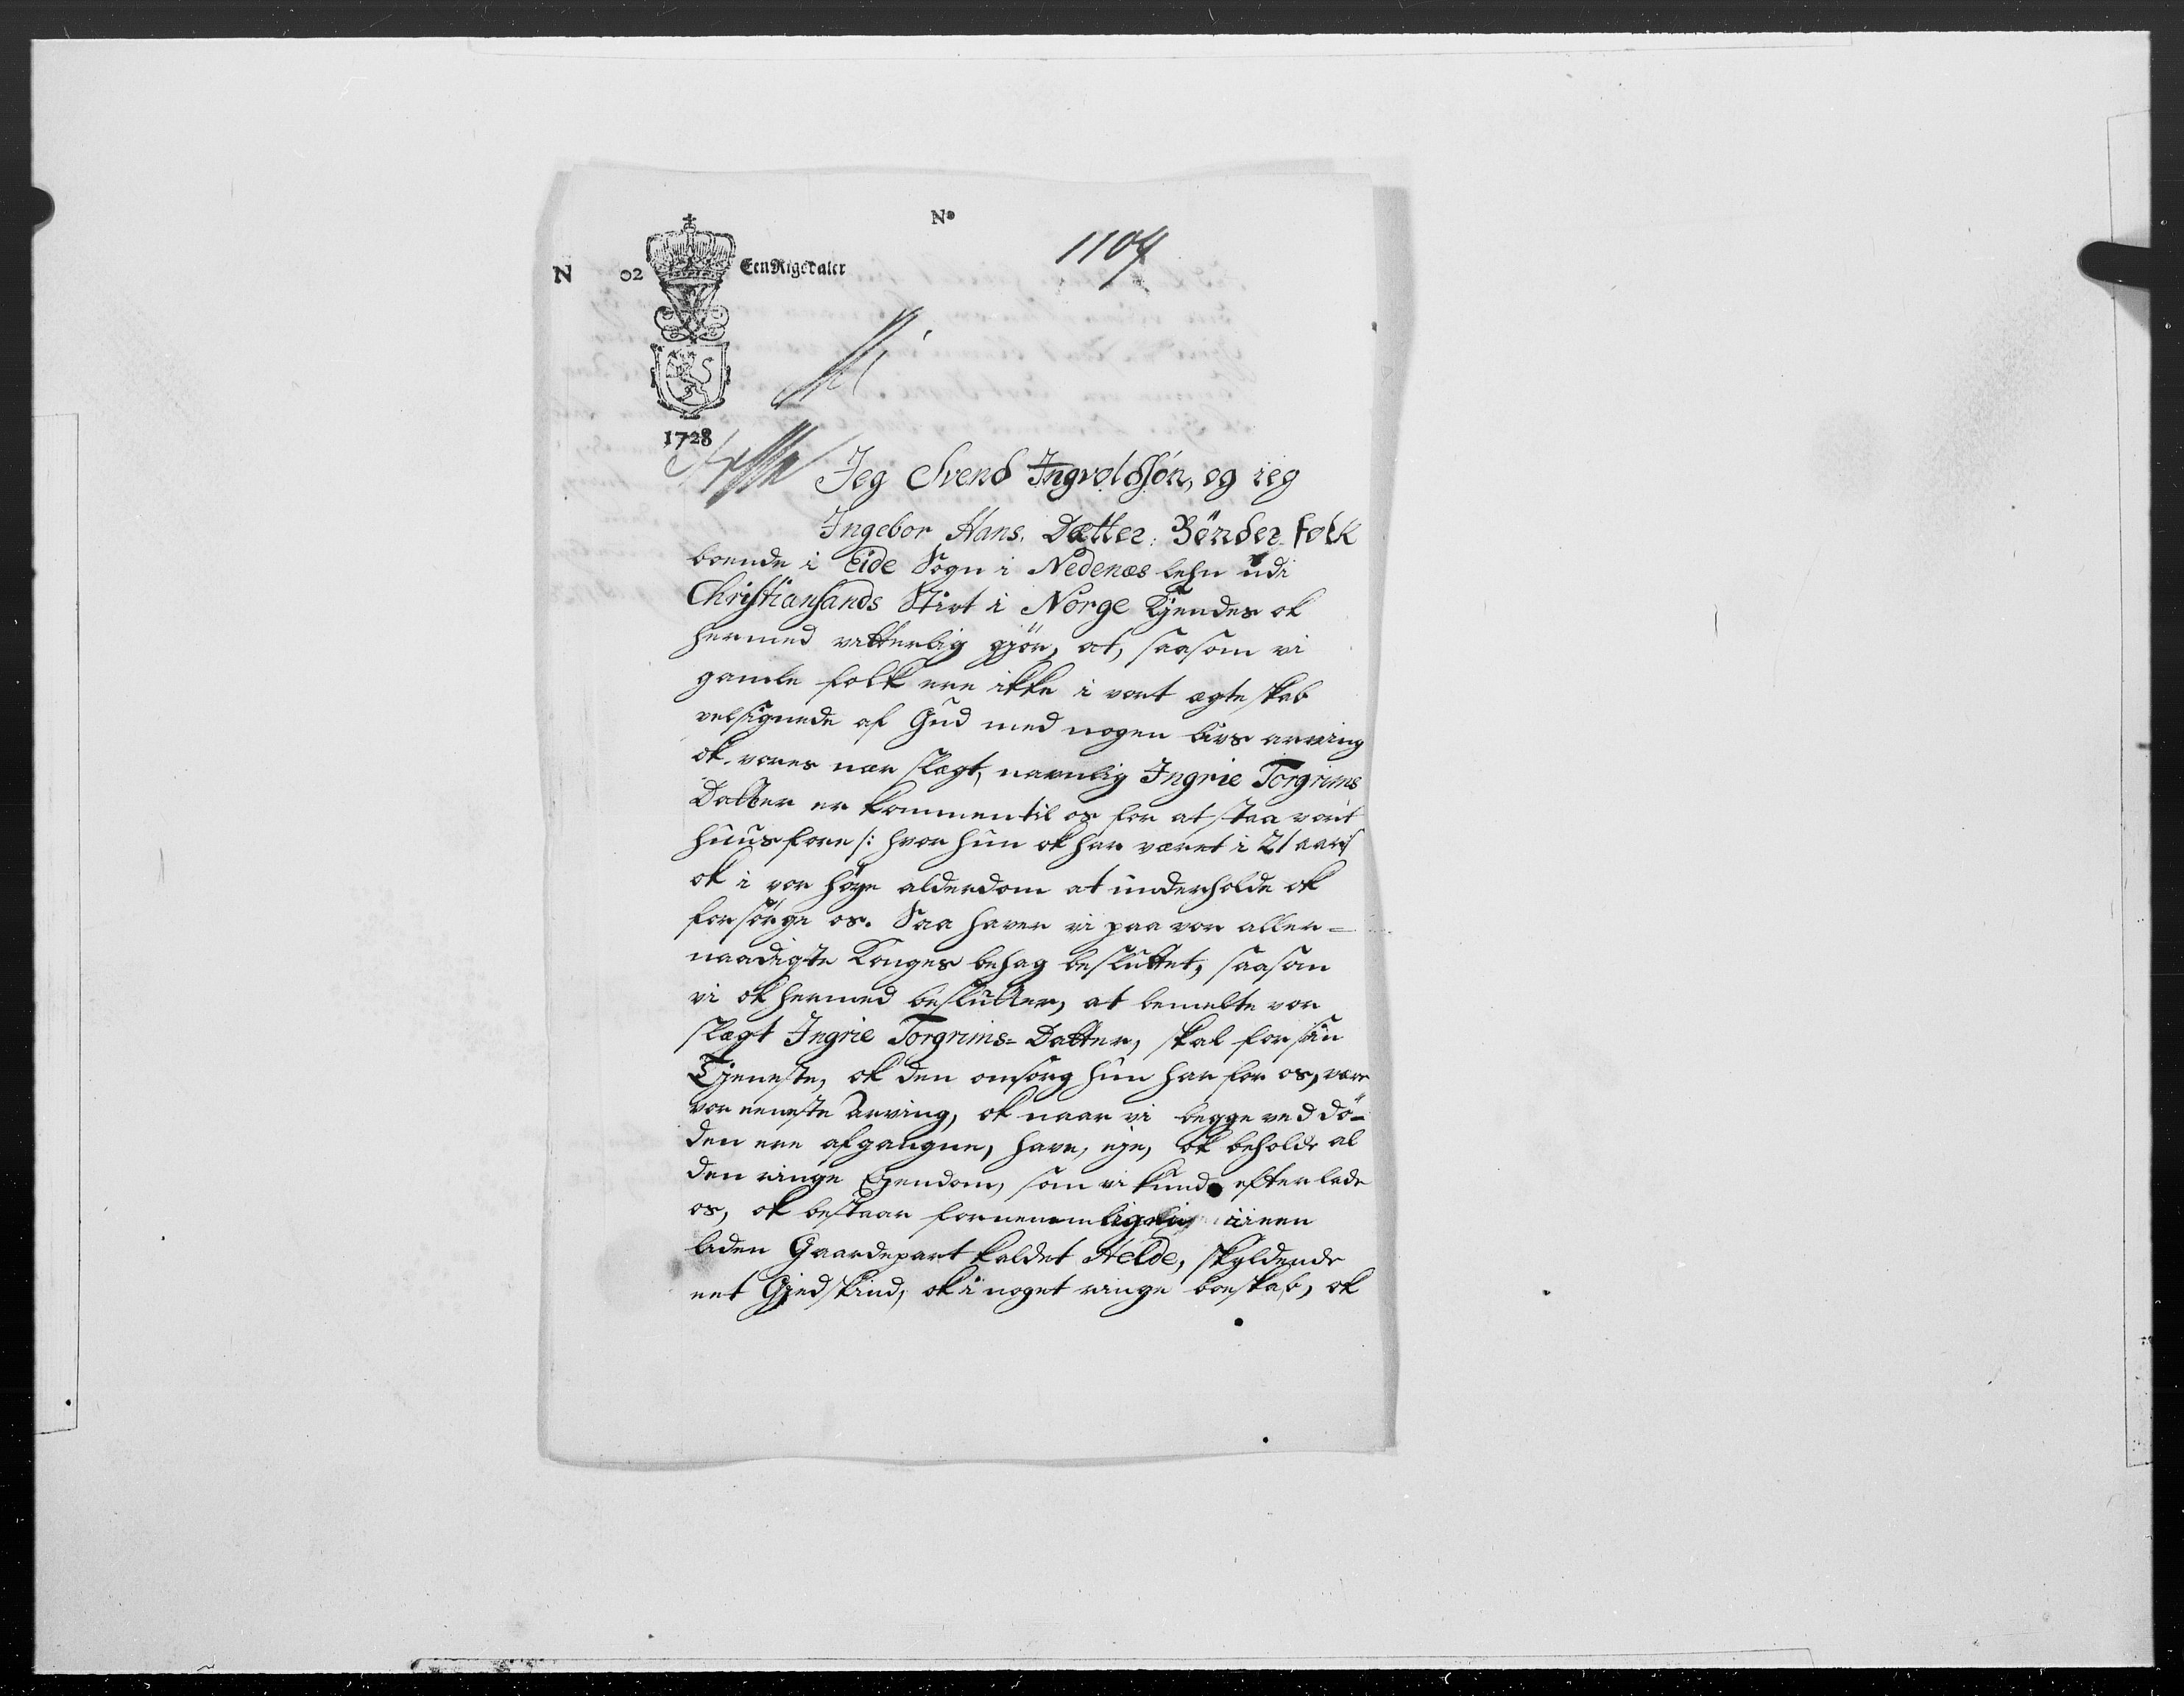 No
1104
N 02 Een Rigsdaler
1728
Jeg Svend Ingvoldsön, og ieg
Ingebor Hans. Dætter: Bönder folk
boende i Eide Sogn i Nedenæs lehn udi
Christiansands Stivt i Norge Kjendes ok
hermed vitterlig gjör, at, saasom vi
gamle folk ere ikke i vort ægteskab
velsignede af Gud med nogen livs arving
ok vores nær slægt, navnlig Ingrie Torgrims
Datter er kommen til os for at staa vort
huus fore /: hvor hun ok har været i 21 aar :/
ok i vor höje alderdom at underholde ok
forsörge os. Saa haver vi paa vor aller=
naadigste Konges behag besluttet, saasom
vi ok hermed beslutter, at bemelte vor
slægt Ingrie Torgrims=Datter, skal for sin
Tjeneste, ok den omsorg hun har for os, være
vor eeneste Arving, ok naar vi begge ved dö=
den ere afgangne, have, eje, ok beholde al
den ringe Ejendom, som vi kunde efterlade
os, ok bestaar fornemmelig i een
liden Gaardepart kaldet Helde, skyldende
eet Gjedskind, ok i noget ringe boeskab, ok